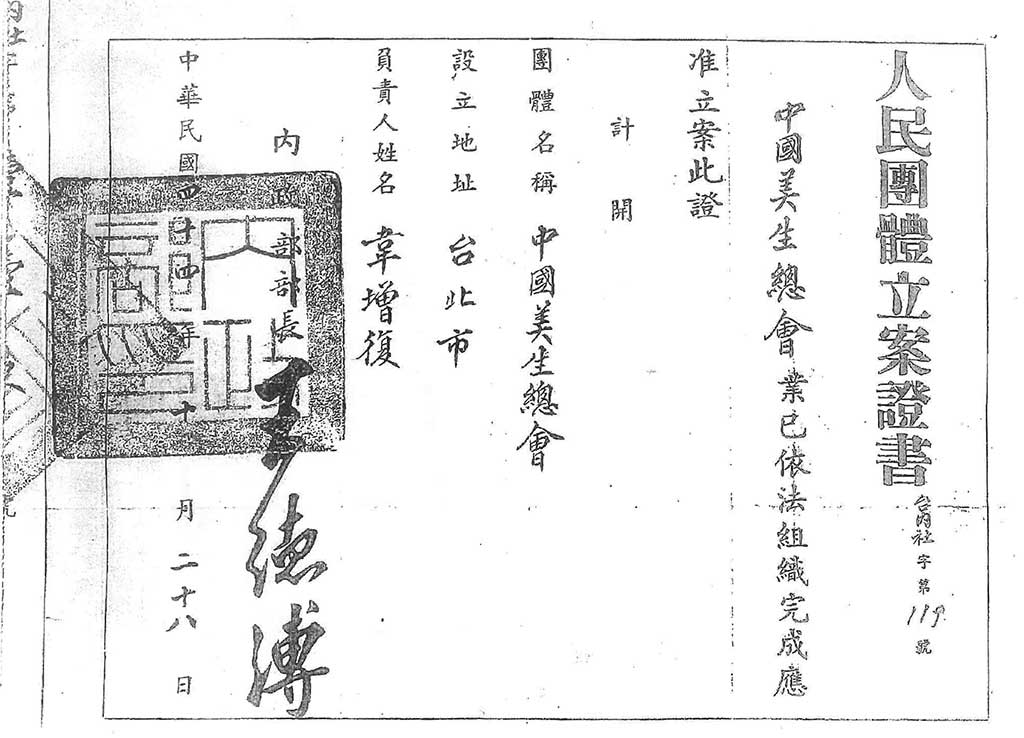 人民團體立案證書
台內社字第119號
中國美生總會業已依法組織完成應
准立案此證
計開
團體名稱 中國美生總會
設立地址 台北市
負責人姓名 韋增復
內政部部長 王德溥
中華民國四十四年十月二十八日